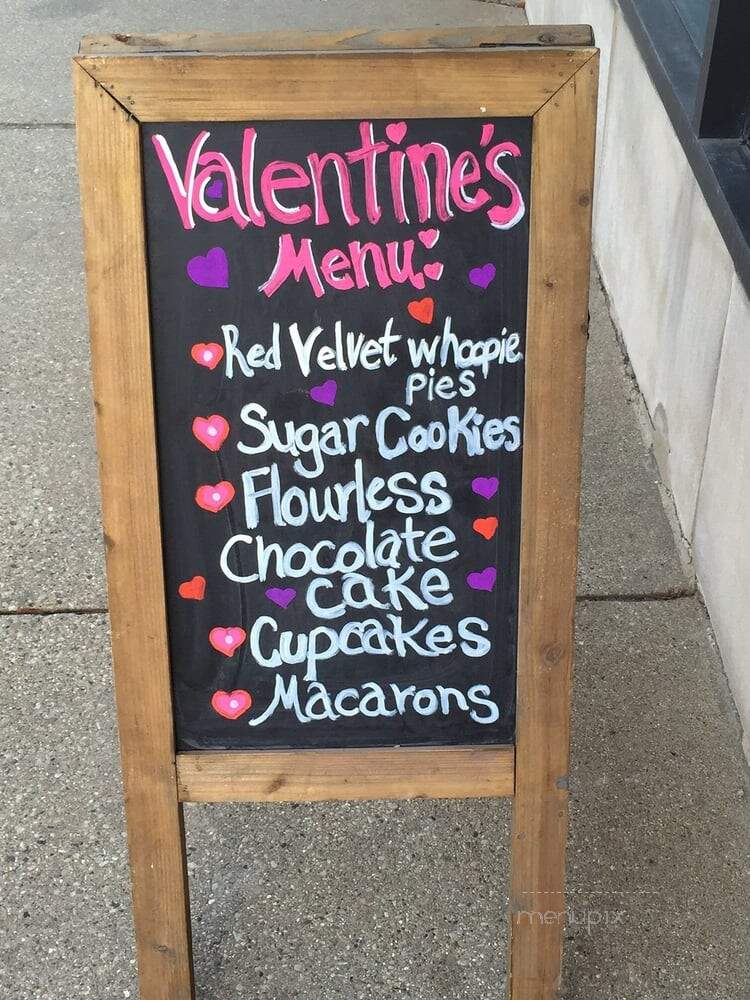 Valentine's
Menu:
Red Velvet whoopie
pies
Sugar Cookies
Flourless
Chocolate
cake
Cupcakes
Macarons
menupix